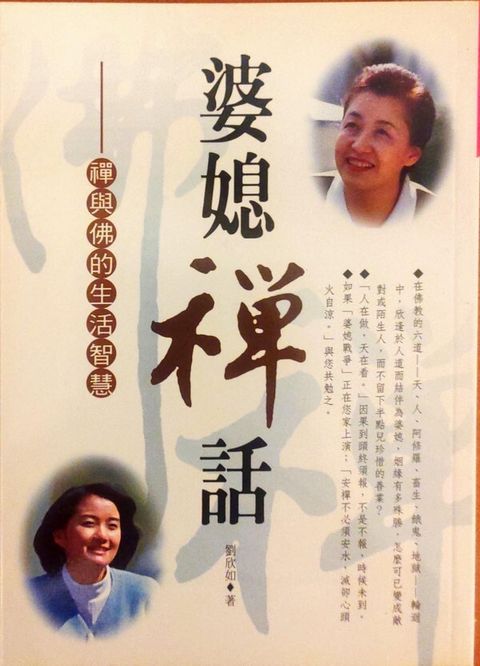 ◆在佛教的六道——天、人、阿修羅、畜生、餓鬼、地獄——輪迴
中，欣逢於人道而結伴為婆媳，姻緣有多殊勝，怎麼可已變成敵
對或陌生人，而不留下半點兒珍惜的善業？
◆「人在做，天在看。」因果到頭終須報，不是不報，時候未到。
◆如果「婆媳戰爭」正在您家上演；「安禪不必須安水，滅卻心頭
火自涼。」與您共勉之。
婆媳禪話
劉欣如◆著
——禪與佛的生活智慧